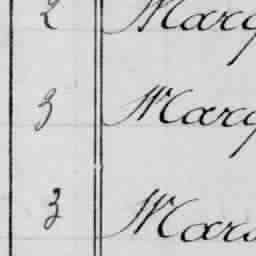 2 Marg
3 Marg
3 Mar